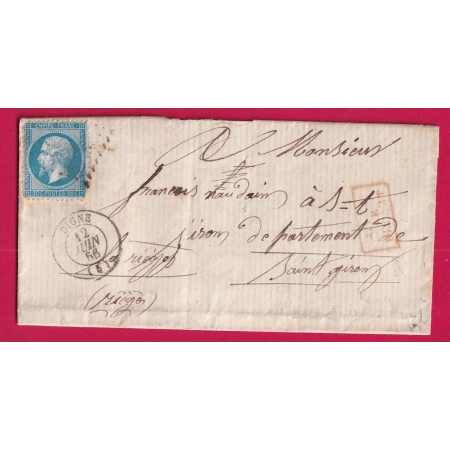 EMPIRE FRANC
20 C POSTES 20 C
DIGNE
12
JUIN
66
(5)
A Monsieur
francois naudain à S-t
giron departement de
Saint giron
(riége)